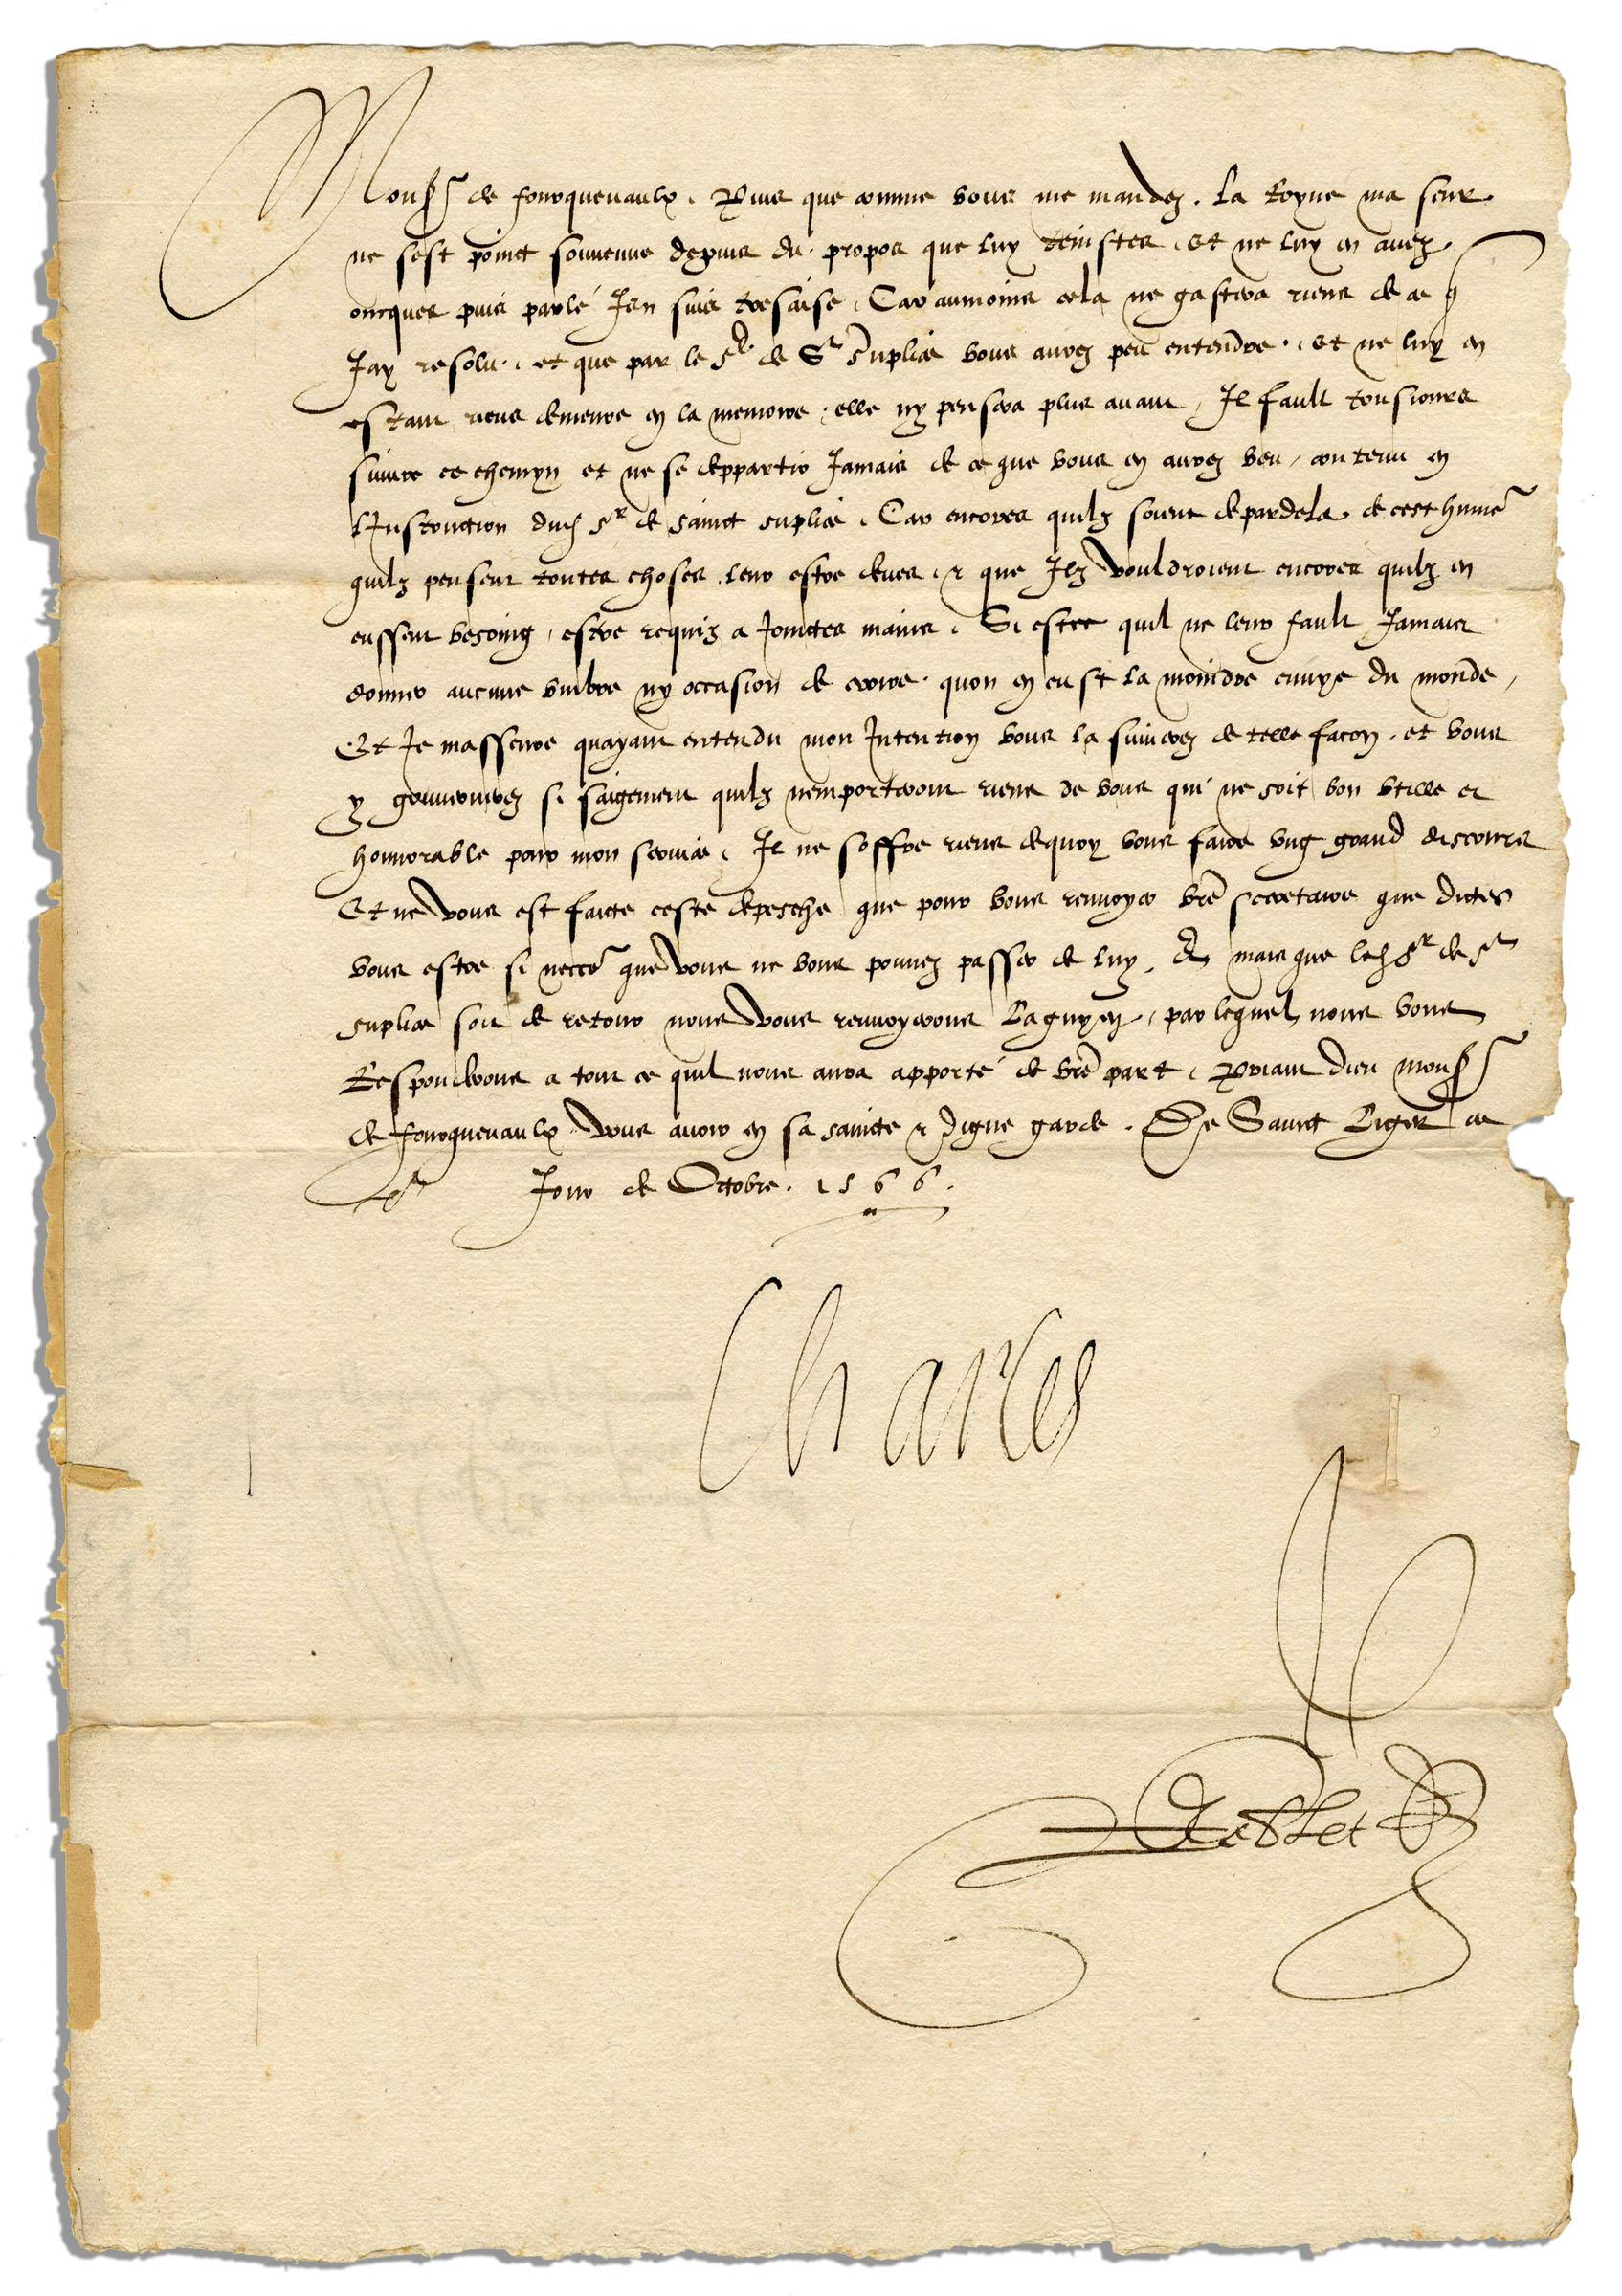 Monsr de fourquevaulx. Puis que comme vous me mandez. La Royne ma seur
ne sest poinct souvenue depuis du propos que luy teinstes, et ne luy en avez
oncques puis parlé Jen suis tresaise, Car aumoins cela ne gastera riens de ce q
Jay resolu, et que par le sr de St suplice vous aurez peu entendre, et ne luy en
estant riens demeure en la memoire, elle ny pensera plus avant, Il fault tousiours
suivre ce chemyn et ne se deppartir Jamais de ce que vous en aurez veu, contenu en
lInstruction dud sr de sainct suplice, Car encores quilz soient depardela de cest humer
quilz pensent toutes choses leur estre deues, & que Ilz vouldroient encores quilz en
eussent besoing, estre requiz a Joinctes mains, Si estce quil ne leur fault Jamais
donner aucune umbre ny occasion de croire quon en eust la moindre envye du monde,
Et Je masseure quayant entendu mon Intention vous la suivrez de telle facon, et vous
y gouvernerez si saigement quilz nemporteront riens de vous qui ne soit bon utille et
honnorable pour mon service, Il ne soffre riens dequoy vous faire ung grand discours
Et ne vous est faicte ceste depesche que pour vous renvoyer vre secretaire que dictes
vous estre si neccre que vous ne vous pouvez passer de luy, mais que led sr de st
suplice soit de retour nous vous renvoyerons Laguyen, par lequel nous vous
Respondrons a tout ce quil nous aura apporté de vre part, Priant Dieu monsr
de fourquevaulx vous avoir en sa saincte & digne garde. De Sainct Liger ce
Jour de Octobre. 1566.
Charles